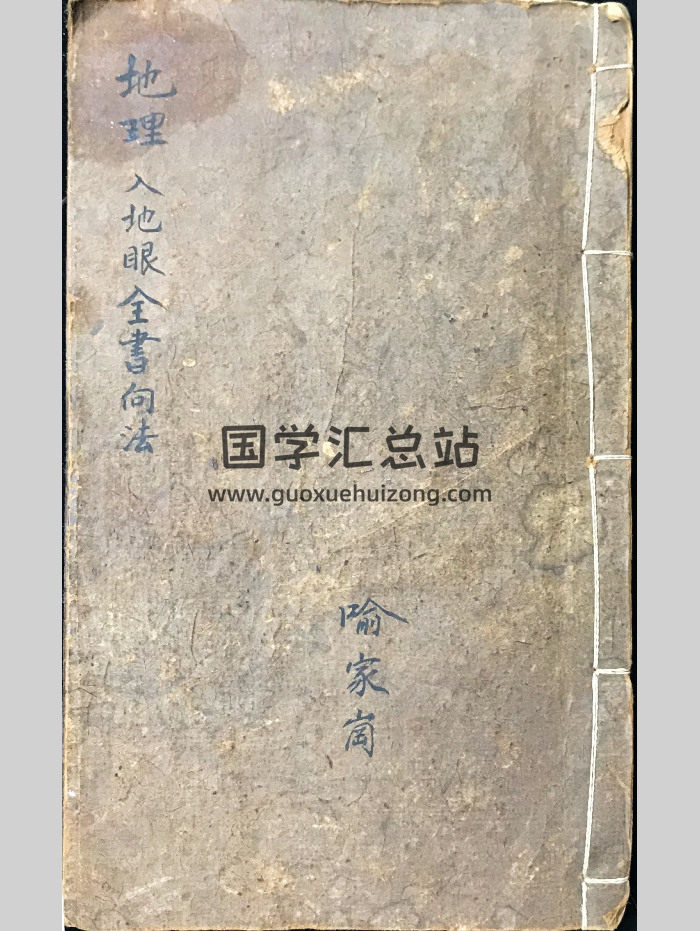 地理入地眼全書向法
国学汇总站
www.guoxuehuizong.com
喻家崗